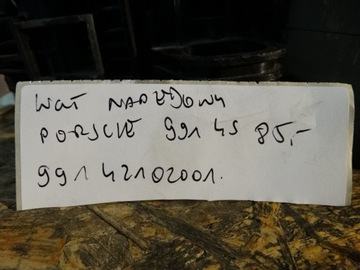 WAŁ NAPĘDOWY
PORSCHE 991 4S 85,-
991 42102001.